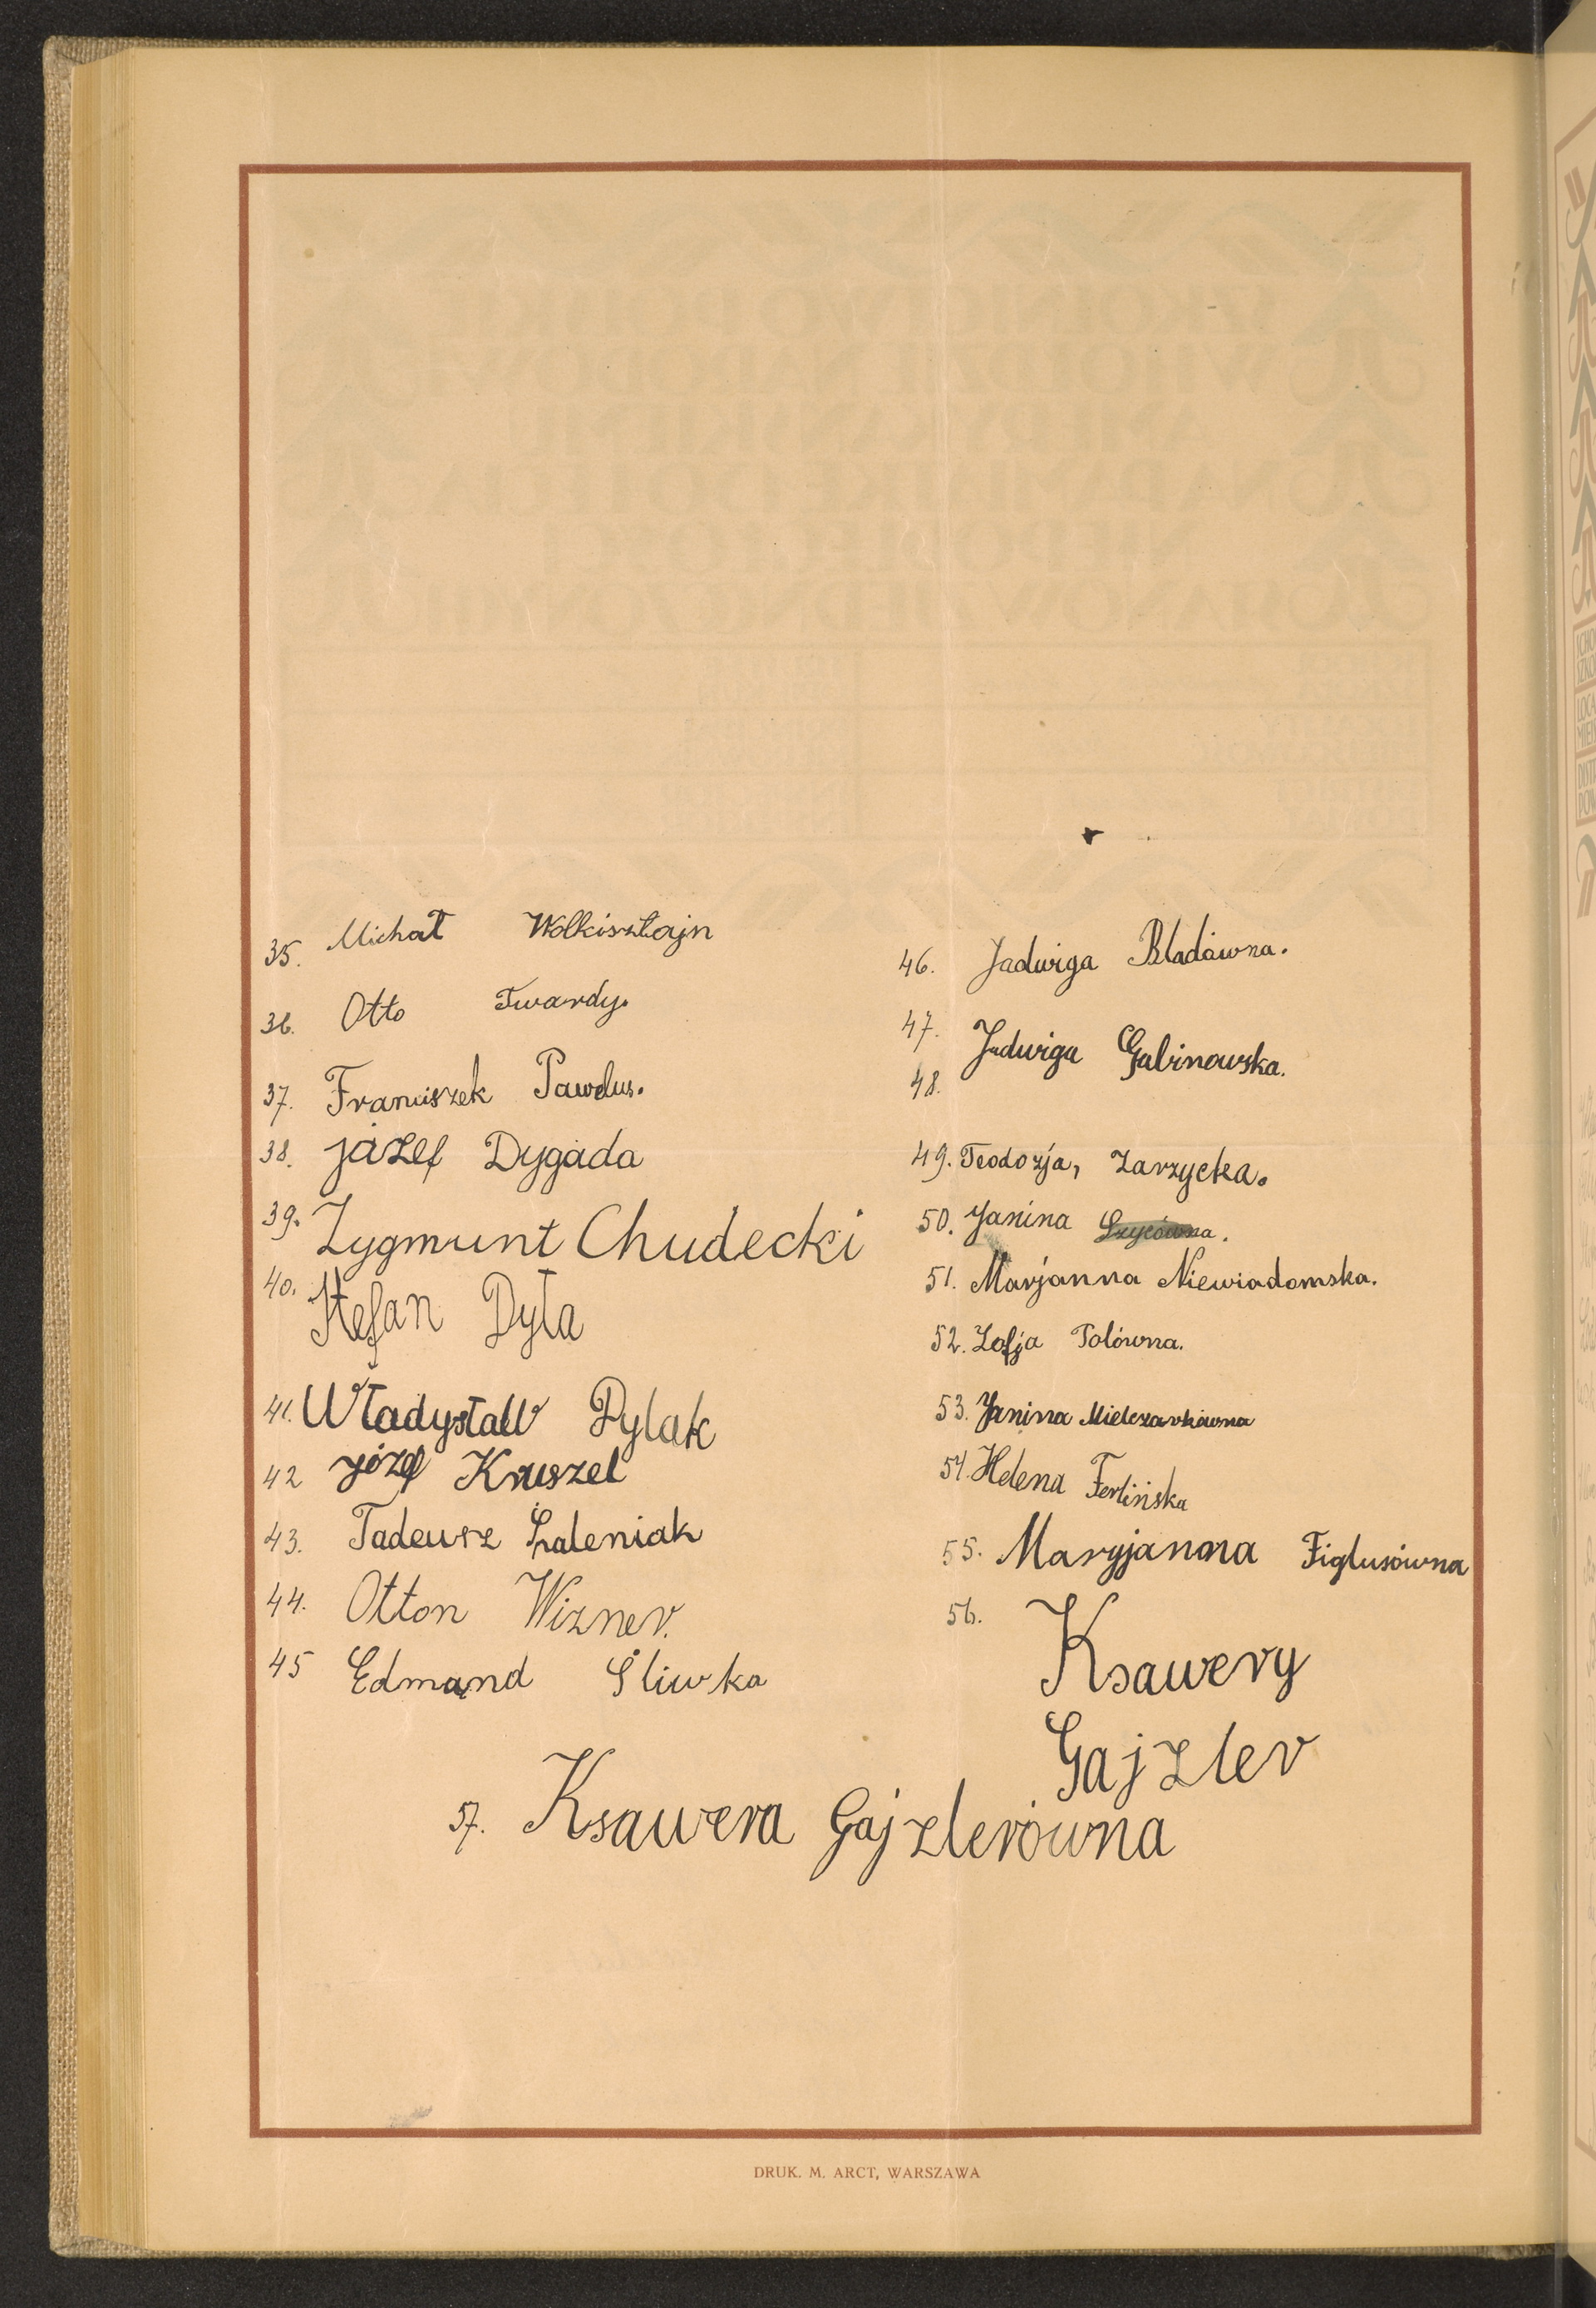 35. Michał Wolkisztajn
36. Otto Twardy.
37. Franciszek Pawelus.
38. józef Dygada
39. Zygmunt Chudecki
40. Stefan Dyła
41. Władysław Pylak
42 józef Kruszel
43. Tadeusz Szaleniak
44. Otton Wizner.
45 Edmund Śliwka
46. Jadwiga Bladówna.
47. Jadwiga Gabinowska.
48.
49. Teodozja, Zarzycka.
50. Janina
51. Marjanna Niewiadomska.
52. Zofja Tolówna.
53. Janina Mielczarkówna
54. Helena Ferlińska
55. Maryjanna Figlusówna
56. Ksawery
Gajzler
57. Ksawera Gajzlerówna
DRUK. M. ARCT, WARSZAWA